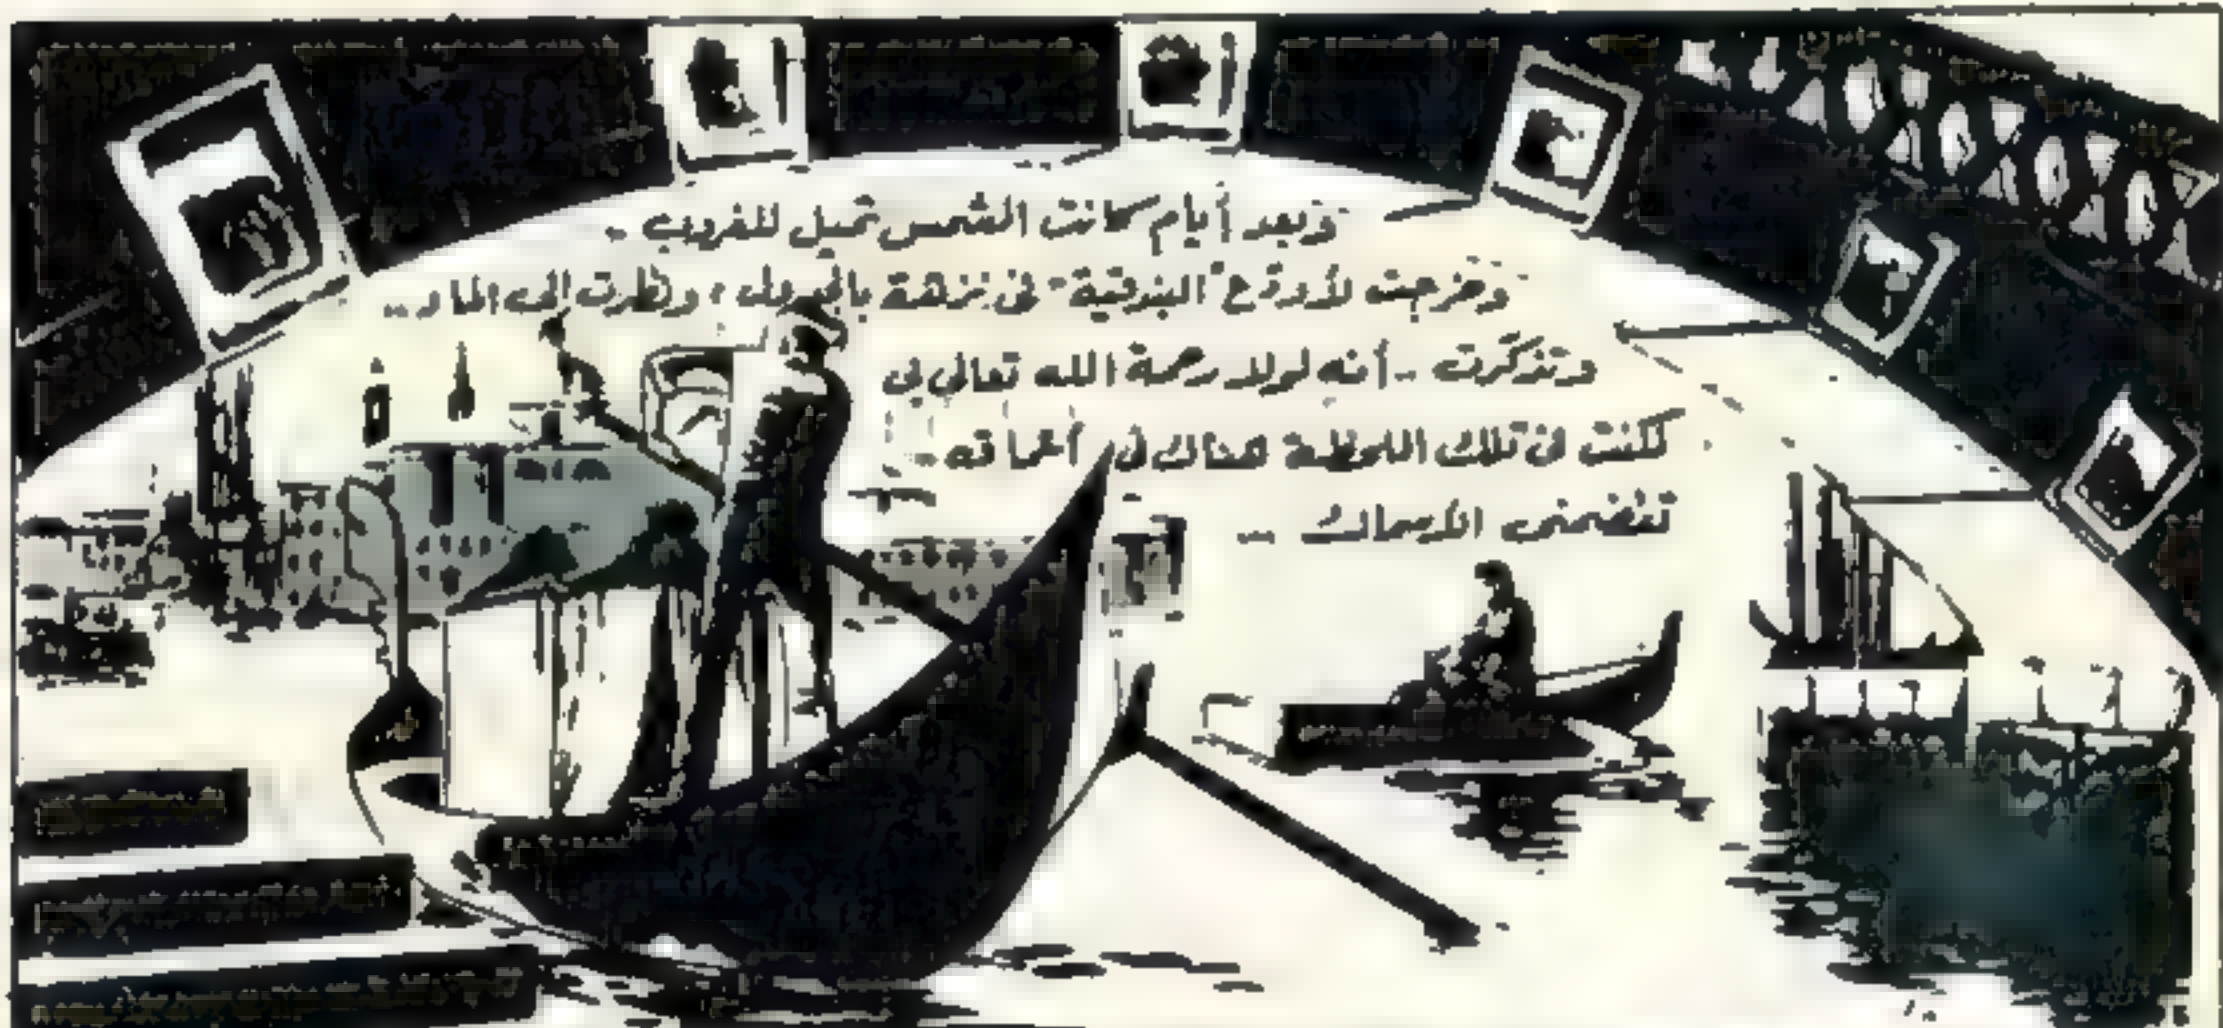 وبعد أيام كانت الشمس تميل للغروب ..
وخرجت لأودّع "البندقية" فى نزهة بالجندول ، ونظرت إلى الماء ..
وتذكرت .. أنه لولا رحمة الله تعالى بى
لكنت فى تلك اللحظة هناك فى أعماقه ..
تقضمنى الأسماك ...